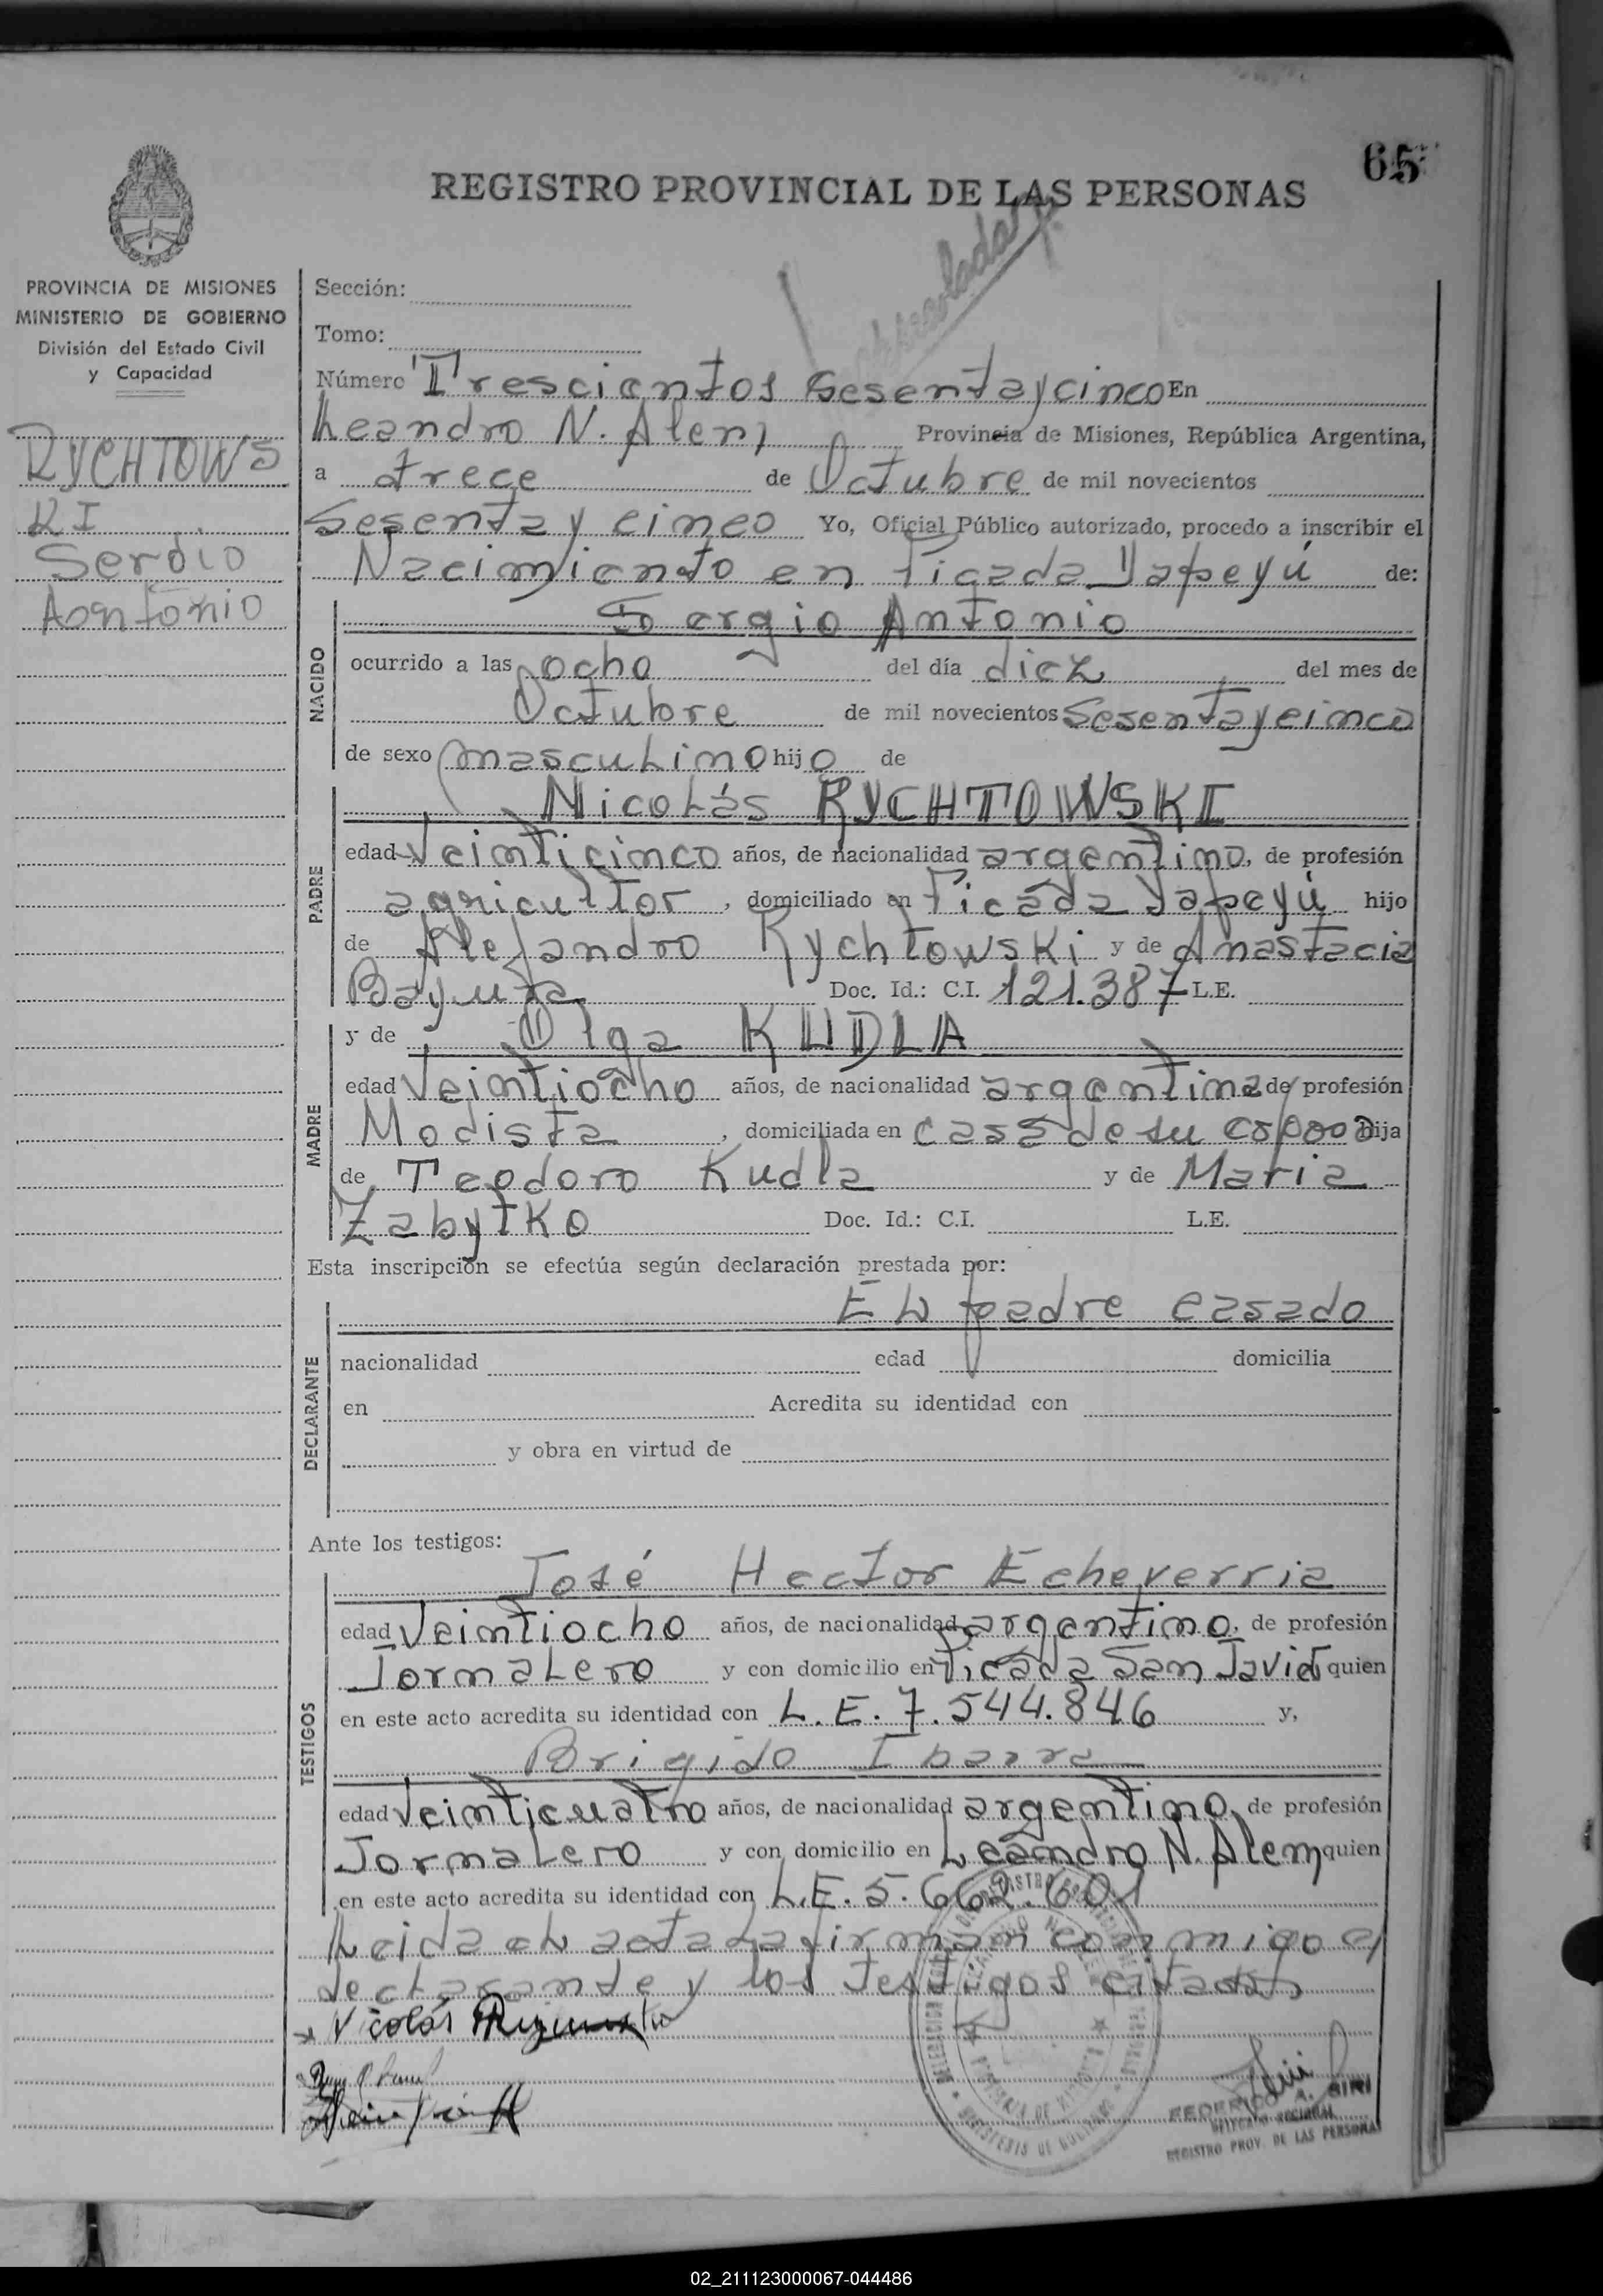 65
REGISTRO PROVINCIAL DE LAS PERSONAS
PROVINCIA DE MISIONES
MINISTERIO DE GOBIERNO
División del Estado Civil
y Capacidad
RYCHTOWS
KI
Serdio
Aontonio
Sección:
Tomo:
Número Trescientos Sesentaycinco En
Leandro N. Alem, Provincia de Misiones, República Argentina,
a trece de Octubre de mil novecientos
Sesenta y cinco Yo, Oficial Público autorizado, procedo a inscribir el
Nacimiento en Picada Yapeyú de:
NACIDO
Sergio Antonio
ocurrido a las ocho del día diez del mes de
Octubre de mil novecientos Sesentaycinco
de sexo masculino hijo de
PADRE
Nicolás RYCHTOWSKI
edad Veinticinco años, de nacionalidad argentino, de profesión
agricultor, domiciliado en Picada Yapeyú hijo
de Alejandro Rychtowski y de Anastacia
Doc. Id.: C.I. 121.387 L.E.
MADRE
y de Olga KUDLA
edad Veintiocho años, de nacionalidad argentina de profesión
Modista, domiciliada en casa de su esposo hija
de Teodoro Kudla y de Maria
Zabytko Doc. Id.: C.I. L.E.
Esta inscripción se efectúa según declaración prestada por:
DECLARANTE
El padre casado
nacionalidad edad domicilia
en Acredita su identidad con
y obra en virtud de
Ante los testigos:
TESTIGOS
José Hector Echeverria
edad Veintiocho años, de nacionalidad argentino, de profesión
Jornalero y con domicilio en Picada San Javier quien
en este acto acredita su identidad con L.E. 7.544.846 y,
Brigido Ibarra
edad Veinticuatro años, de nacionalidad argentino, de profesión
Jornalero y con domicilio en Leandro N. Alem quien
en este acto acredita su identidad con L.E. 5.662.601
Leida el acta la firman conmigo el
declarante y los testigos citados
Nicolás
FEDERICO A. SIRI
DELEGADO REGIONAL
REGISTRO PROV. DE LAS PERSONAS
02_211123000067-044486